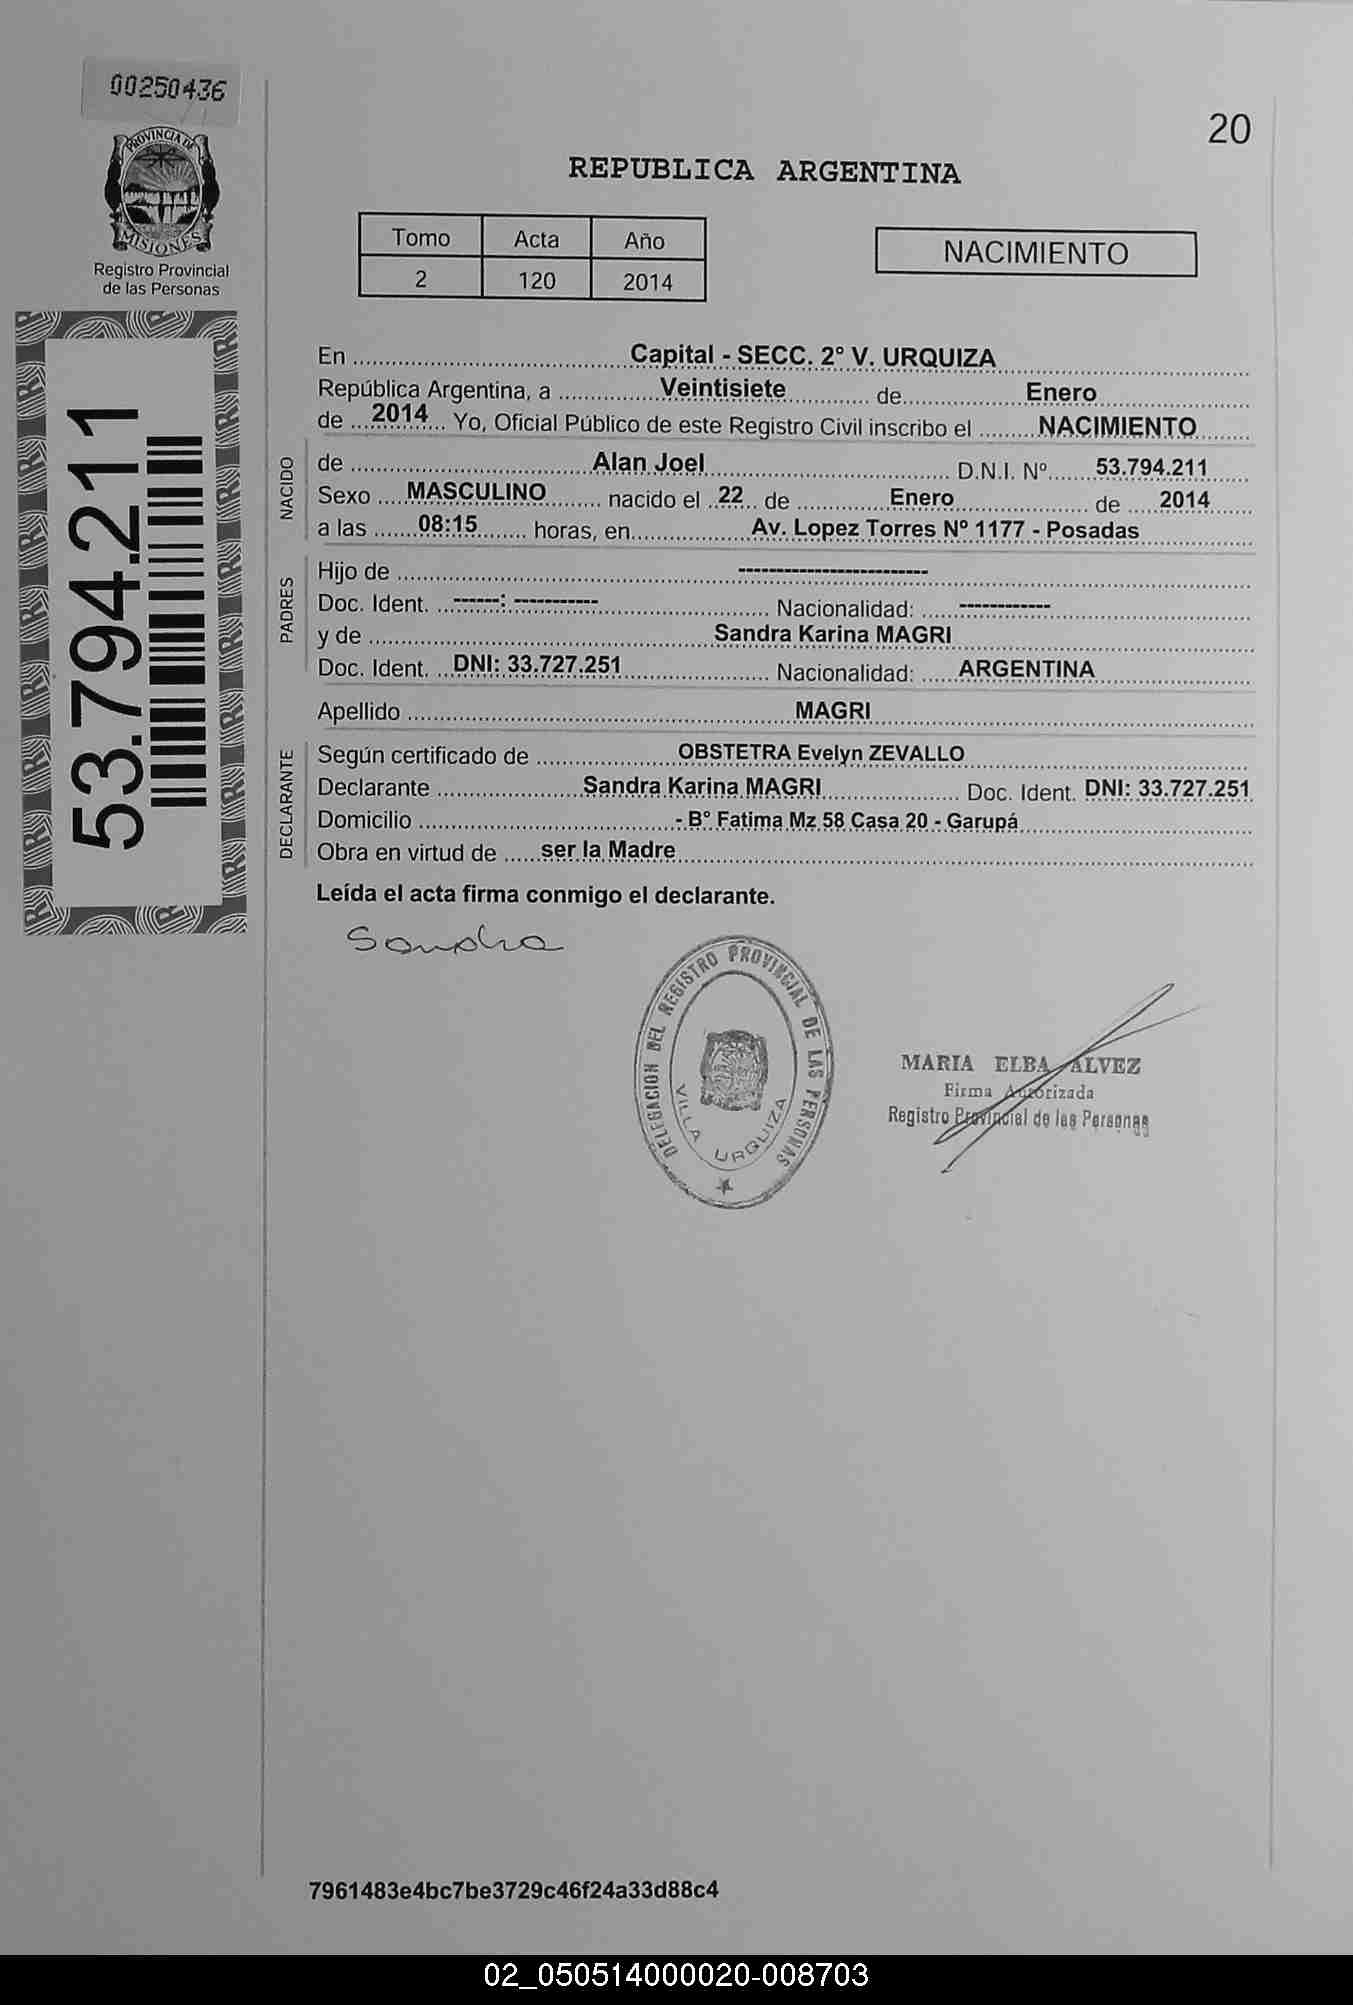 00250436
PROVINCIA DE
MISIONES
Registro Provincial
de las Personas
53.794.211
20
REPUBLICA ARGENTINA
Tomo Acta Año
2 120 2014
NACIMIENTO
En Capital - SECC. 2° V. URQUIZA
República Argentina, a Veintisiete de Enero
de 2014 Yo, Oficial Público de este Registro Civil inscribo el NACIMIENTO
NACIDO
de Alan Joel D.N.I. Nº 53.794.211
Sexo MASCULINO nacido el 22 de Enero de 2014
a las 08:15 horas, en Av. Lopez Torres Nº 1177 - Posadas
PADRES
Hijo de -------------------------
Doc. Ident. ------: ----------- Nacionalidad: ------------
y de Sandra Karina MAGRI
Doc. Ident. DNI: 33.727.251 Nacionalidad: ARGENTINA
Apellido MAGRI
DECLARANTE
Según certificado de OBSTETRA Evelyn ZEVALLO
Declarante Sandra Karina MAGRI Doc. Ident. DNI: 33.727.251
Domicilio - B° Fatima Mz 58 Casa 20 - Garupá
Obra en virtud de ser la Madre
Leída el acta firma conmigo el declarante.
Sandra
DELEGACION DEL REGISTRO PROVINCIAL DE LAS PERSONAS
VILLA URQUIZA
MARIA ELBA ALVEZ
Firma Autorizada
Registro Provincial de las Personas
7961483e4bc7be3729c46f24a33d88c4
02_050514000020-008703